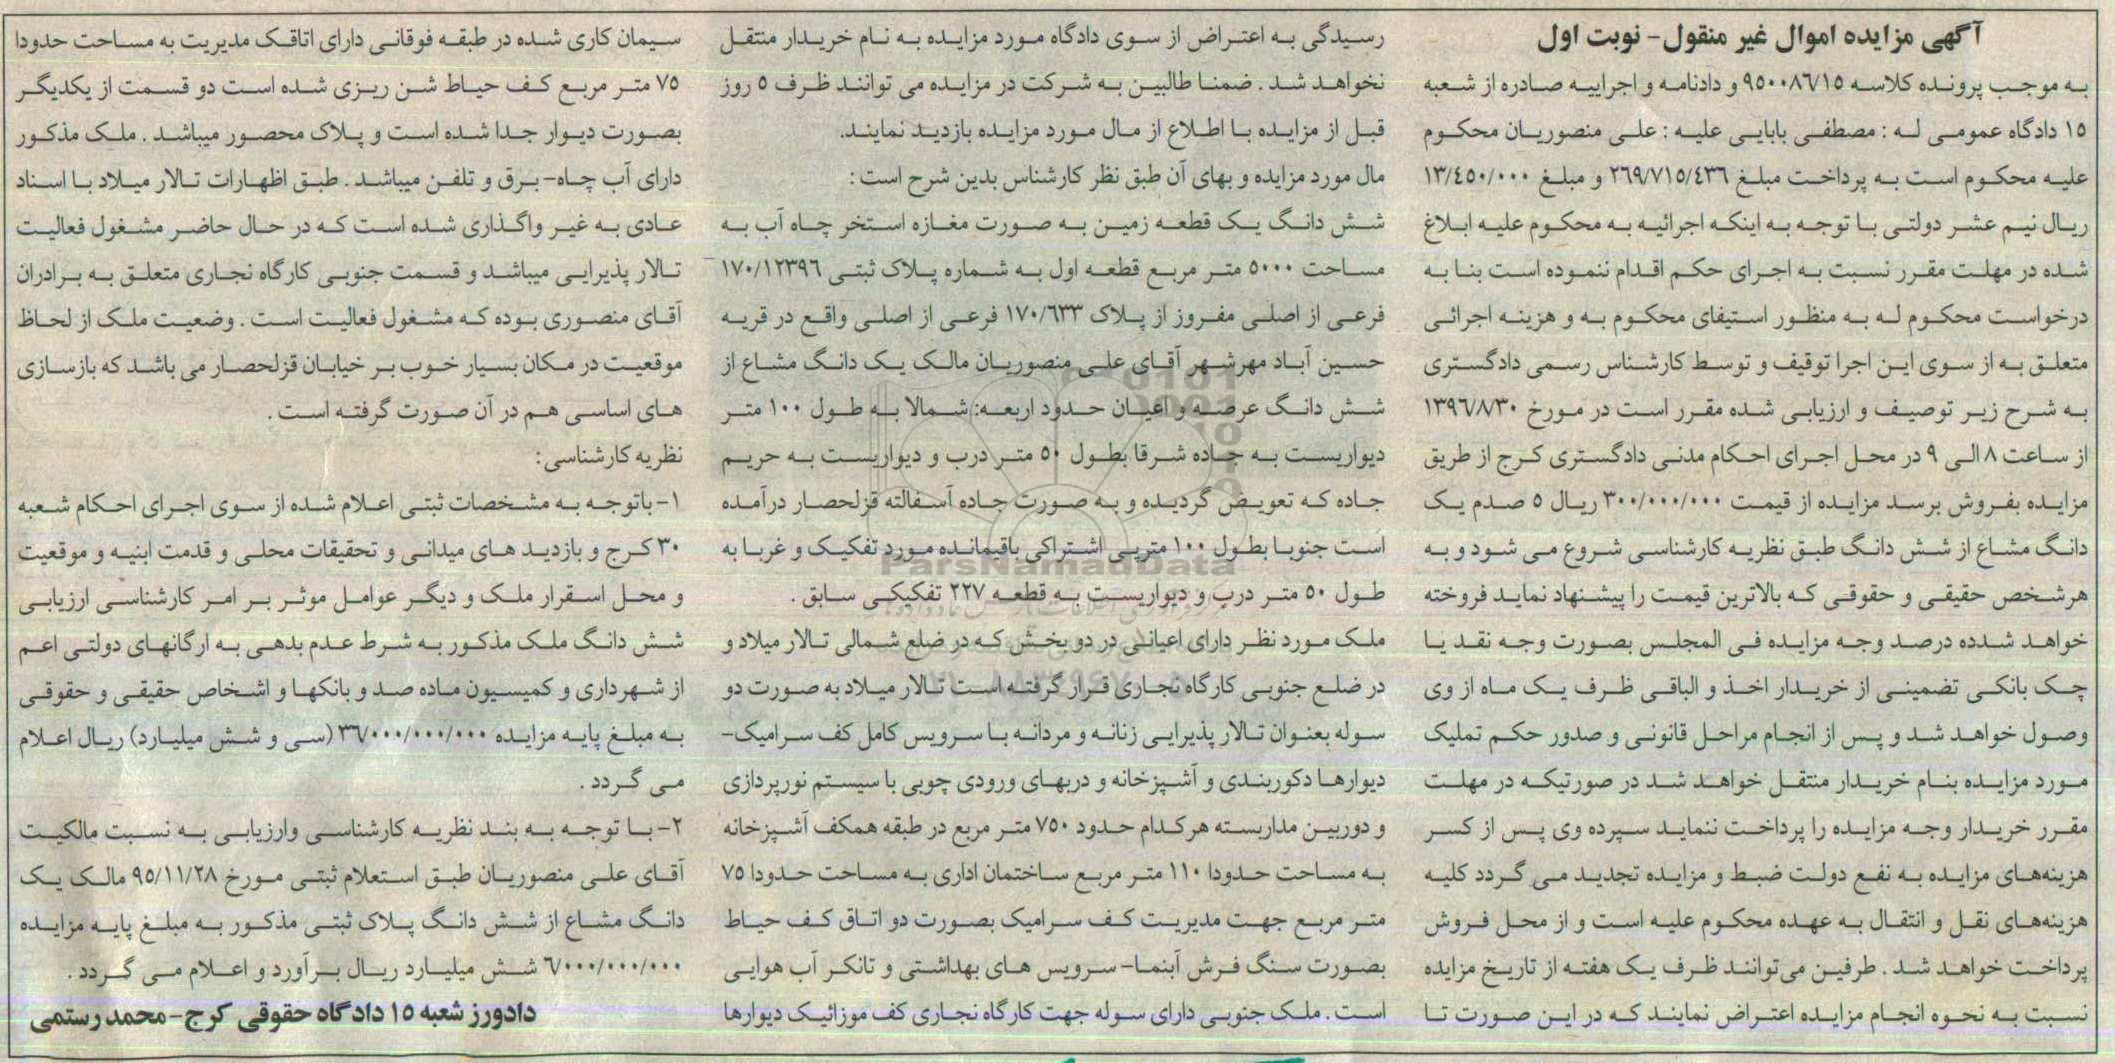 آگهی مزایده اموال غیر منقول- نوبت اول
به موجب پرونده کلاسه ۹۵۰۰۸۶/۱۵ و دادنامه و اجراییه صادره از شعبه
۱۵ دادگاه عمومی له : مصطفی بابایی علیه : علی منصوریان محکوم
علیه محکوم است به پرداخت مبلغ ۲۶۹/۷۱۵/۴۳۶ و مبلغ ۱۳/۴۵۰/۰۰۰
ریال نیم عشر دولتی با توجه به اینکه اجرائیه به محکوم علیه ابلاغ
شده در مهلت مقرر نسبت به اجرای حکم اقدام ننموده است بنا به
درخواست محکوم له به منظور استیفای محکوم به و هزینه اجرائی
متعلق به از سوی این اجرا توقیف و توسط کارشناس رسمی دادگستری
به شرح زیر توصیف و ارزیابی شده مقرر است در مورخ ۱۳۹۶/۸/۳۰
از ساعت ۸ الی ۹ در محل اجرای احکام مدنی دادگستری کرج از طریق
مزایده بفروش برسد مزایده از قیمت ۳۰۰/۰۰۰/۰۰۰ ریال ۵ صدم یک
دانگ مشاع از شش دانگ طبق نظریه کارشناسی شروع می شود و به
هرشخص حقیقی و حقوقی که بالاترین قیمت را پیشنهاد نماید فروخته
خواهد شدده درصد وجه مزایده فی المجلس بصورت وجه نقد یا
چک بانکی تضمینی از خریدار اخذ و الباقی ظرف یک ماه از وی
وصول خواهد شد و پس از انجام مراحل قانونی و صدور حکم تملیک
مورد مزایده بنام خریدار منتقل خواهد شد در صورتیکه در مهلت
مقرر خریدار وجه مزایده را پرداخت ننماید سپرده وی پس از کسر
هزینه‌های مزایده به نفع دولت ضبط و مزایده تجدید می گردد کلیه
هزینه‌های نقل و انتقال به عهده محکوم علیه است و از محل فروش
پرداخت خواهد شد . طرفین می‌توانند ظرف یک هفته از تاریخ مزایده
نسبت به نحوه انجام مزایده اعتراض نمایند که در این صورت تا
رسیدگی به اعتراض از سوی دادگاه مورد مزایده به نام خریدار منتقل
نخواهد شد . ضمنا طالبین به شرکت در مزایده می توانند ظرف ۵ روز
قبل از مزایده با اطلاع از مال مورد مزایده بازدید نمایند.
مال مورد مزایده و بهای آن طبق نظر کارشناس بدین شرح است :
شش دانگ یک قطعه زمین به صورت مغازه استخر چاه آب به
مساحت ۵۰۰۰ متر مربع قطعه اول به شماره پلاک ثبتی ۱۷۰/۱۲۳۹۶
فرعی از اصلی مفروز از پلاک ۱۷۰/۶۳۳ فرعی از اصلی واقع در قریه
حسین آباد مهرشهر آقای علی منصوریان مالک یک دانگ مشاع از
شش دانگ عرصه و اعیان حدود اربعه: شمالا به طول ۱۰۰ متر
دیواریست به جاده شرقا بطول ۵۰ متر درب و دیواریست به حریم
جاده که تعویض گردیده و به صورت جاده آسفالته قزلحصار درآمده
است جنوبا بطول ۱۰۰ مترپی اشتراکی باقیمانده مورد تفکیک و غربا به
طول ۵۰ متر درب و دیواریست به قطعه ۲۲۷ تفکیکی سابق .
ملک مورد نظر دارای اعیانی در دو بخش که در ضلع شمالی تالار میلاد و
در ضلع جنوبی کارگاه نجاری قرار گرفته است تالار میلاد به صورت دو
سوله بعنوان تالار پذیرایی زنانه و مردانه با سرویس کامل کف سرامیک-
دیوارها دکوربندی و آشپزخانه و دربهای ورودی چوبی با سیستم نورپردازی
و دوربین مداربسته هرکدام حدود ۷۵۰ متر مربع در طبقه همکف آشپزخانه
به مساحت حدودا ۱۱۰ متر مربع ساختمان اداری به مساحت حدودا ۷۵
متر مربع جهت مدیریت کف سرامیک بصورت دو اتاق کف حیاط
بصورت سنگ فرش آبنما- سرویس های بهداشتی و تانکر آب هوایی
است . ملک جنوبی دارای سوله جهت کارگاه نجاری کف موزائیک دیوارها
سیمان کاری شده در طبقه فوقانی دارای اتاقک مدیریت به مساحت حدودا
۷۵ متر مربع کف حیاط شن ریزی شده است دو قسمت از یکدیگر
بصورت دیوار جدا شده است و پلاک محصور میباشد . ملک مذکور
دارای آب چاه- برق و تلفن میباشد . طبق اظهارات تالار میلاد با اسناد
عادی به غیر واگذاری شده است که در حال حاضر مشغول فعالیت
تالار پذیرایی میباشد و قسمت جنوبی کارگاه نجاری متعلق به برادران
آقای منصوری بوده که مشغول فعالیت است . وضعیت ملک از لحاظ
موقعیت در مکان بسیار خوب بر خیابان قزلحصار می باشد که بازسازی
های اساسی هم در آن صورت گرفته است .
نظریه کارشناسی:
۱- باتوجه به مشخصات ثبتی اعلام شده از سوی اجرای احکام شعبه
۳۰ کرج و بازدید های میدانی و تحقیقات محلی و قدمت ابنیه و موقعیت
و محل اسقرار ملک و دیگر عوامل موثر بر امر کارشناسی ارزیابی
شش دانگ ملک مذکور به شرط عدم بدهی به ارگانهای دولتی اعم
از شهرداری و کمیسیون ماده صد و بانکها و اشخاص حقیقی و حقوقی
به مبلغ پایه مزایده ۳۶/۰۰۰/۰۰۰/۰۰۰ (سی و شش میلیارد) ریال اعلام
می گردد .
۲- با توجه به بند نظریه کارشناسی وارزیابی به نسبت مالکیت
آقای علی منصوریان طبق استعلام ثبتی مورخ ۹۵/۱۱/۲۸ مالک یک
دانگ مشاع از شش دانگ پلاک ثبتی مذکور به مبلغ پایه مزایده
۶/۰۰۰/۰۰۰/۰۰۰ شش میلیارد ریال برآورد و اعلام می گردد .
دادورز شعبه ۱۵ دادگاه حقوقی کرج- محمد رستمی
ParsNamadData